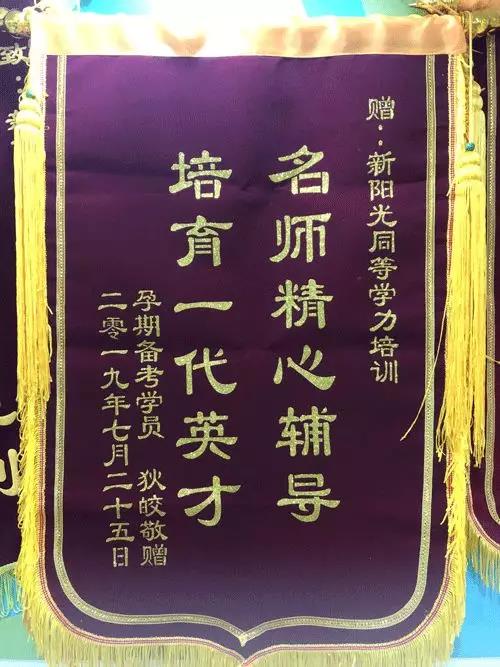 赠：新阳光同等学力培训
名师精心辅导
培育一代英才
孕期备考学员 狄皎敬赠
二零一九年七月二十五日
致：